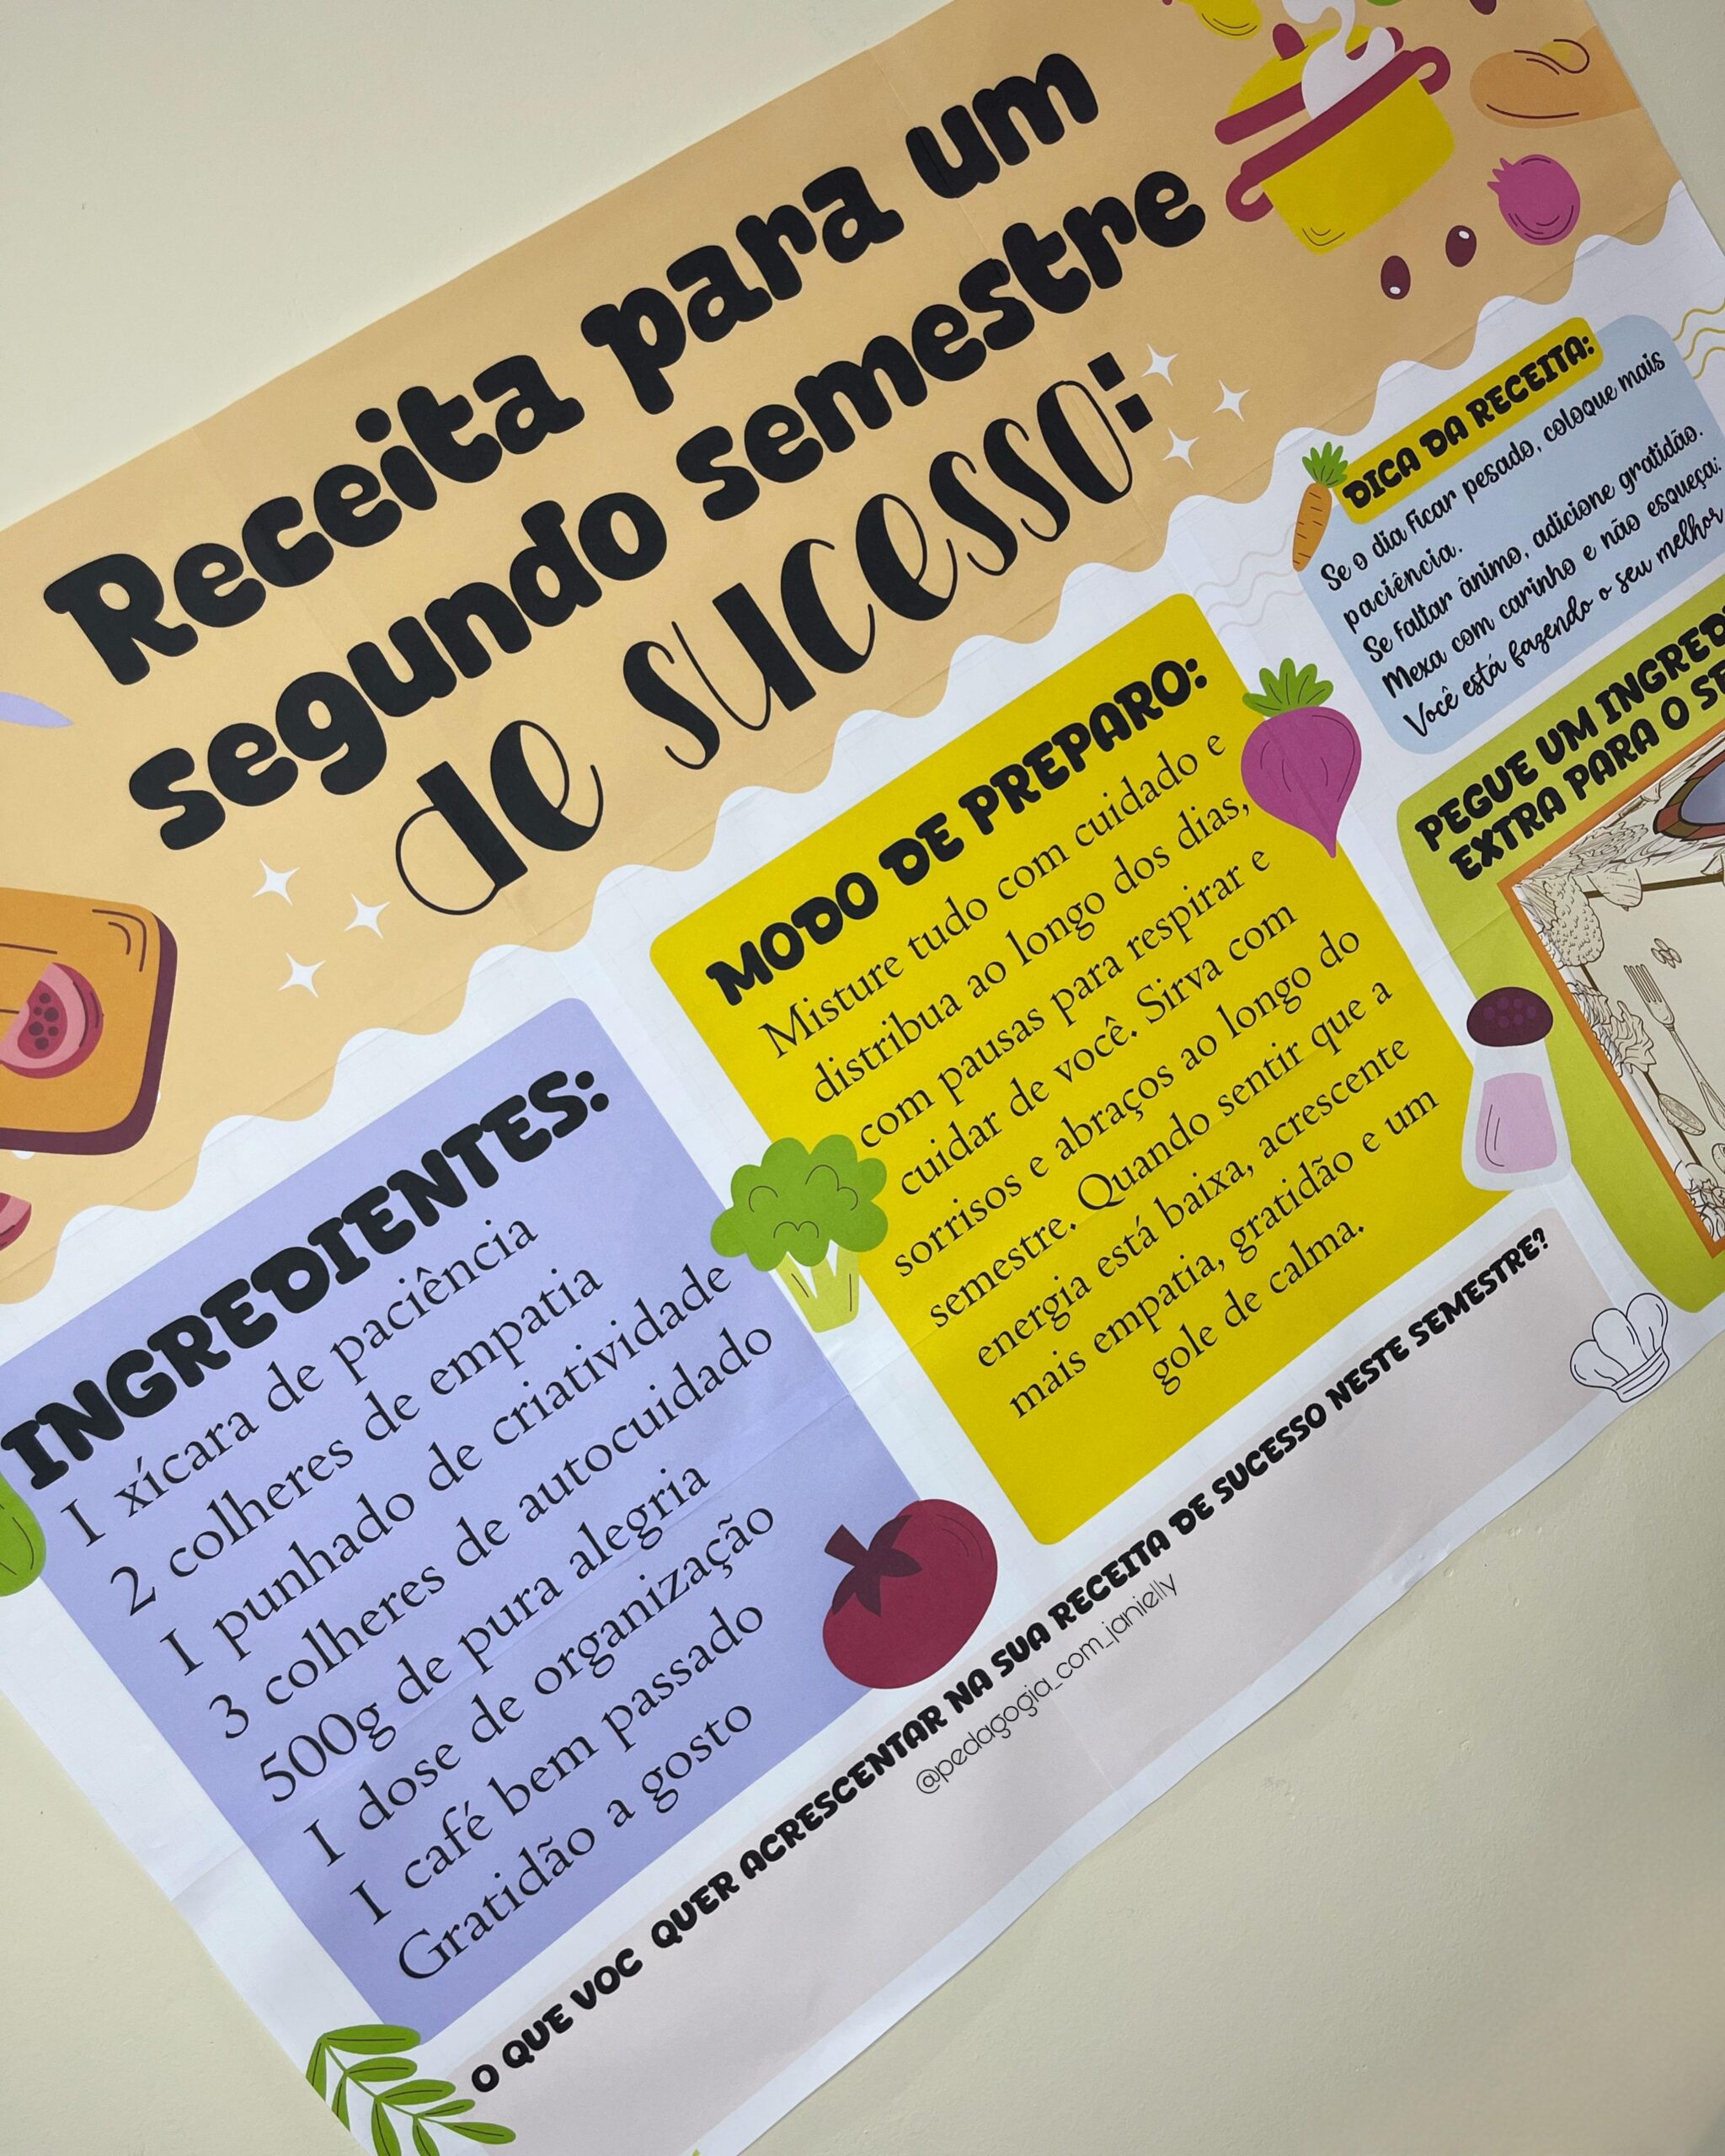 Receita para um
segundo semestre
de sucesso:
INGREDIENTES:
1 xícara de paciência
2 colheres de empatia
1 punhado de criatividade
3 colheres de autocuidado
500g de pura alegria
1 dose de organização
1 café bem passado
Gratidão a gosto
MODO DE PREPARO:
Misture tudo com cuidado e
distribua ao longo dos dias,
com pausas para respirar e
cuidar de você. Sirva com
sorrisos e abraços ao longo do
semestre. Quando sentir que a
energia está baixa, acrescente
mais empatia, gratidão e um
gole de calma.
DICA DA RECEITA:
Se o dia ficar pesado, coloque mais
paciência.
Se faltar ânimo, adicione gratidão.
Mexa com carinho e não esqueça:
Você está fazendo o seu melhor
PEGUE UM
EXTRA PARA O
O QUE VOC QUER ACRESCENTAR NA SUA RECEITA DE SUCESSO NESTE SEMESTRE?
@pedagogia_com_janielly